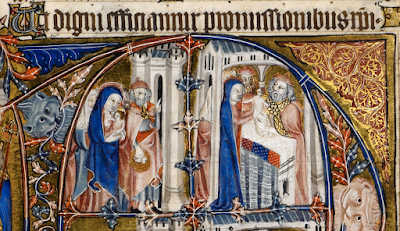 Ut digni efficiamur promissionibus